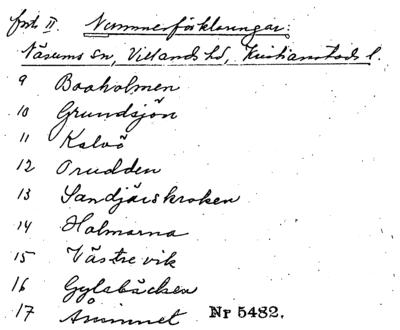 forts II. Nummerförklaringar:
Näsums sn, Villands hd, Kristianstads l.
9 Boaholmen
10 Grundsjön
11 Kalvö
12 Orudden
13 Sandjärskroken
14 Holmarna
15 Västre vik
16 Gylsbäcken
17 Åmynnet Nr 5482.